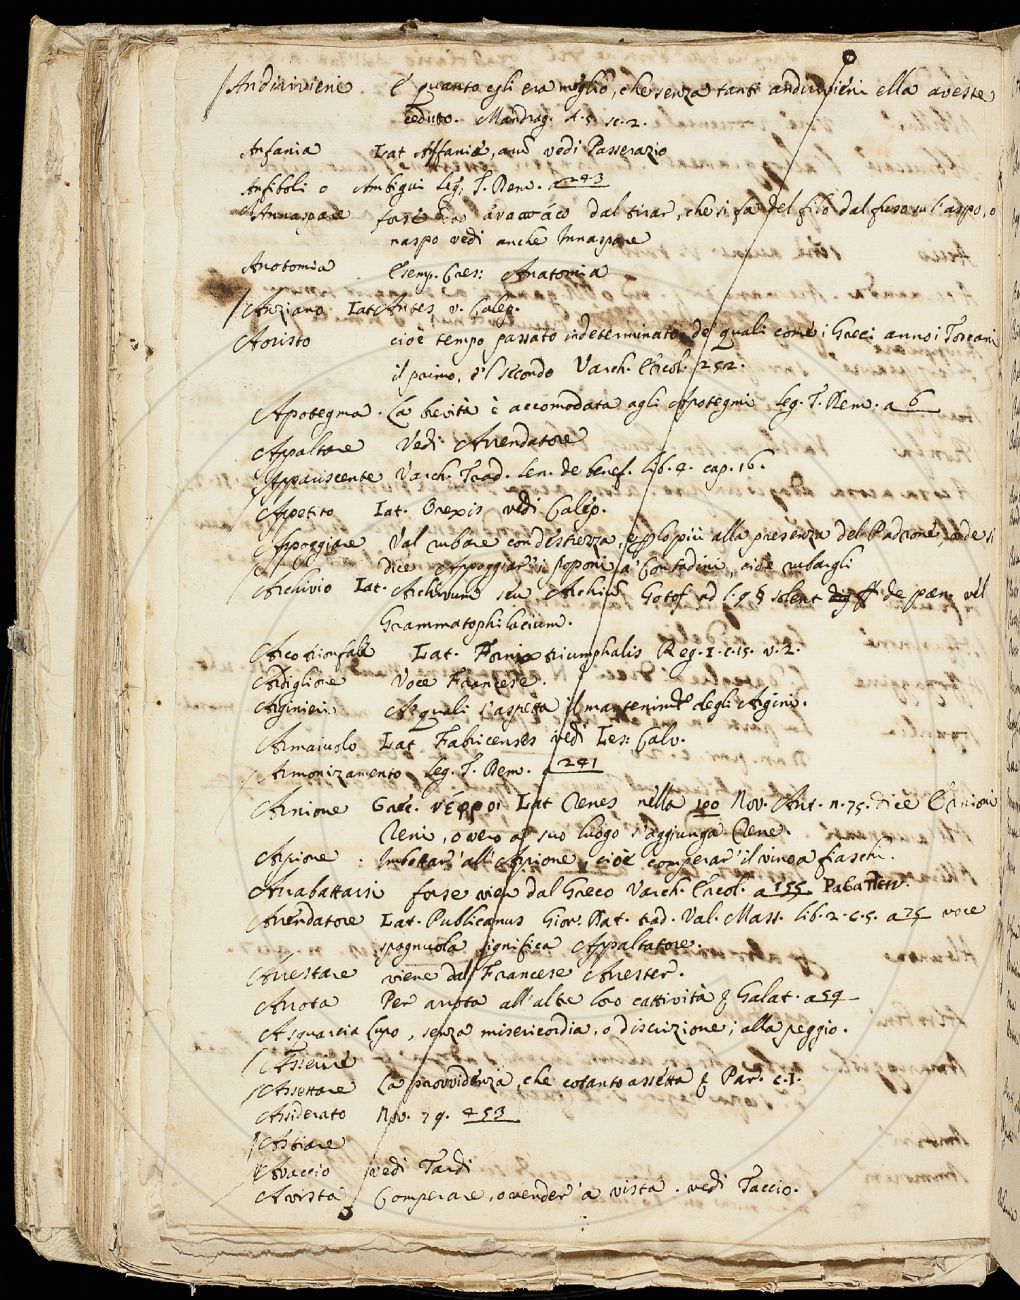 Andirivieni È quanto egli era meglio, che senza tanti andirivieni ella avesse
ceduto. Mandrag. A. 5. sc. 2.
Anfania Lat Affaniae, anū vedi Passerazio
Anfiboli o Ambigui Leg: T. Rem. a 243
Annaspare forse da dal tirar, che si fa del filo dal fuso su l'aspo, o
naspo vedi anche Innaspare
Anotomia Esemp. Cres: Anatomia
Anziano Lat Antes v. Calep.
Aoristo cioè tempo passato indeterminato de' quali come i Greci anno i Toscani
il primo, e'l secondo Varch. Ercol. 252.
Apotegma. La brevità è accomodata agli Apotegmi Leg. T. Rem. a 6
Appaltare Vedi Arrendatore
Appariscente Varch. Trad. Sen. de benef. lib. 4. cap. 16.
Appetito Lat. Orexis vedi Calep.
Appoggiare Val rubare con destrezza, e lo più alla presenza del Padrone, onde si
dice Appoggiar' i poponi a' Contadini, cioè rubargli
Archivio Lat. Archivum seu Archiū Gotof. ad l. 9 § solent dig ff de pœn vel
Grammatophilacium.
Arco trionfale Lat. Fornix triumphalis Reg. I. c. 15. v. 2.
Ardiglione Voce Francese.
Arginieri A' quali s'aspetta il mantenimto degli Argini.
Armaiuolo Lat Fabricenses vedi Les: Calv.
Armonizamento Leg. T. Rem. a 241
Arnione Grec. Lat Renes nella 100 Nov. Ant. n. 75. dice Ernioni
Reni, overo al suo luogo s'aggiunga Rene.
Arpione: Imbottar' all'Arpione, cioè comperar' il vino a fiaschi.
Arrabattarsi forse vien dal Greco Varch. Ercol. a 155
Arrendatore Lat. Publicanus Gior. Dat. trad. Val. Mass. lib. 2. c. 5. a 75 voce
spagnuola significa Appaltatore.
Arrestare viene dal Francese Arrester.
Arrota Per arrota all'altre loro cattività Galat. a 59
A squarcia lupo, senza misericordia, o discrizione; alla peggio.
Asserire
Assettare La provvidenza, che cotanto assetta Par. c. I.
Assiderato Nov. 79. 453
Astiare
Avaccio vedi Tardi
A vista Comperare, o vender' a vista. vedi Taccio.